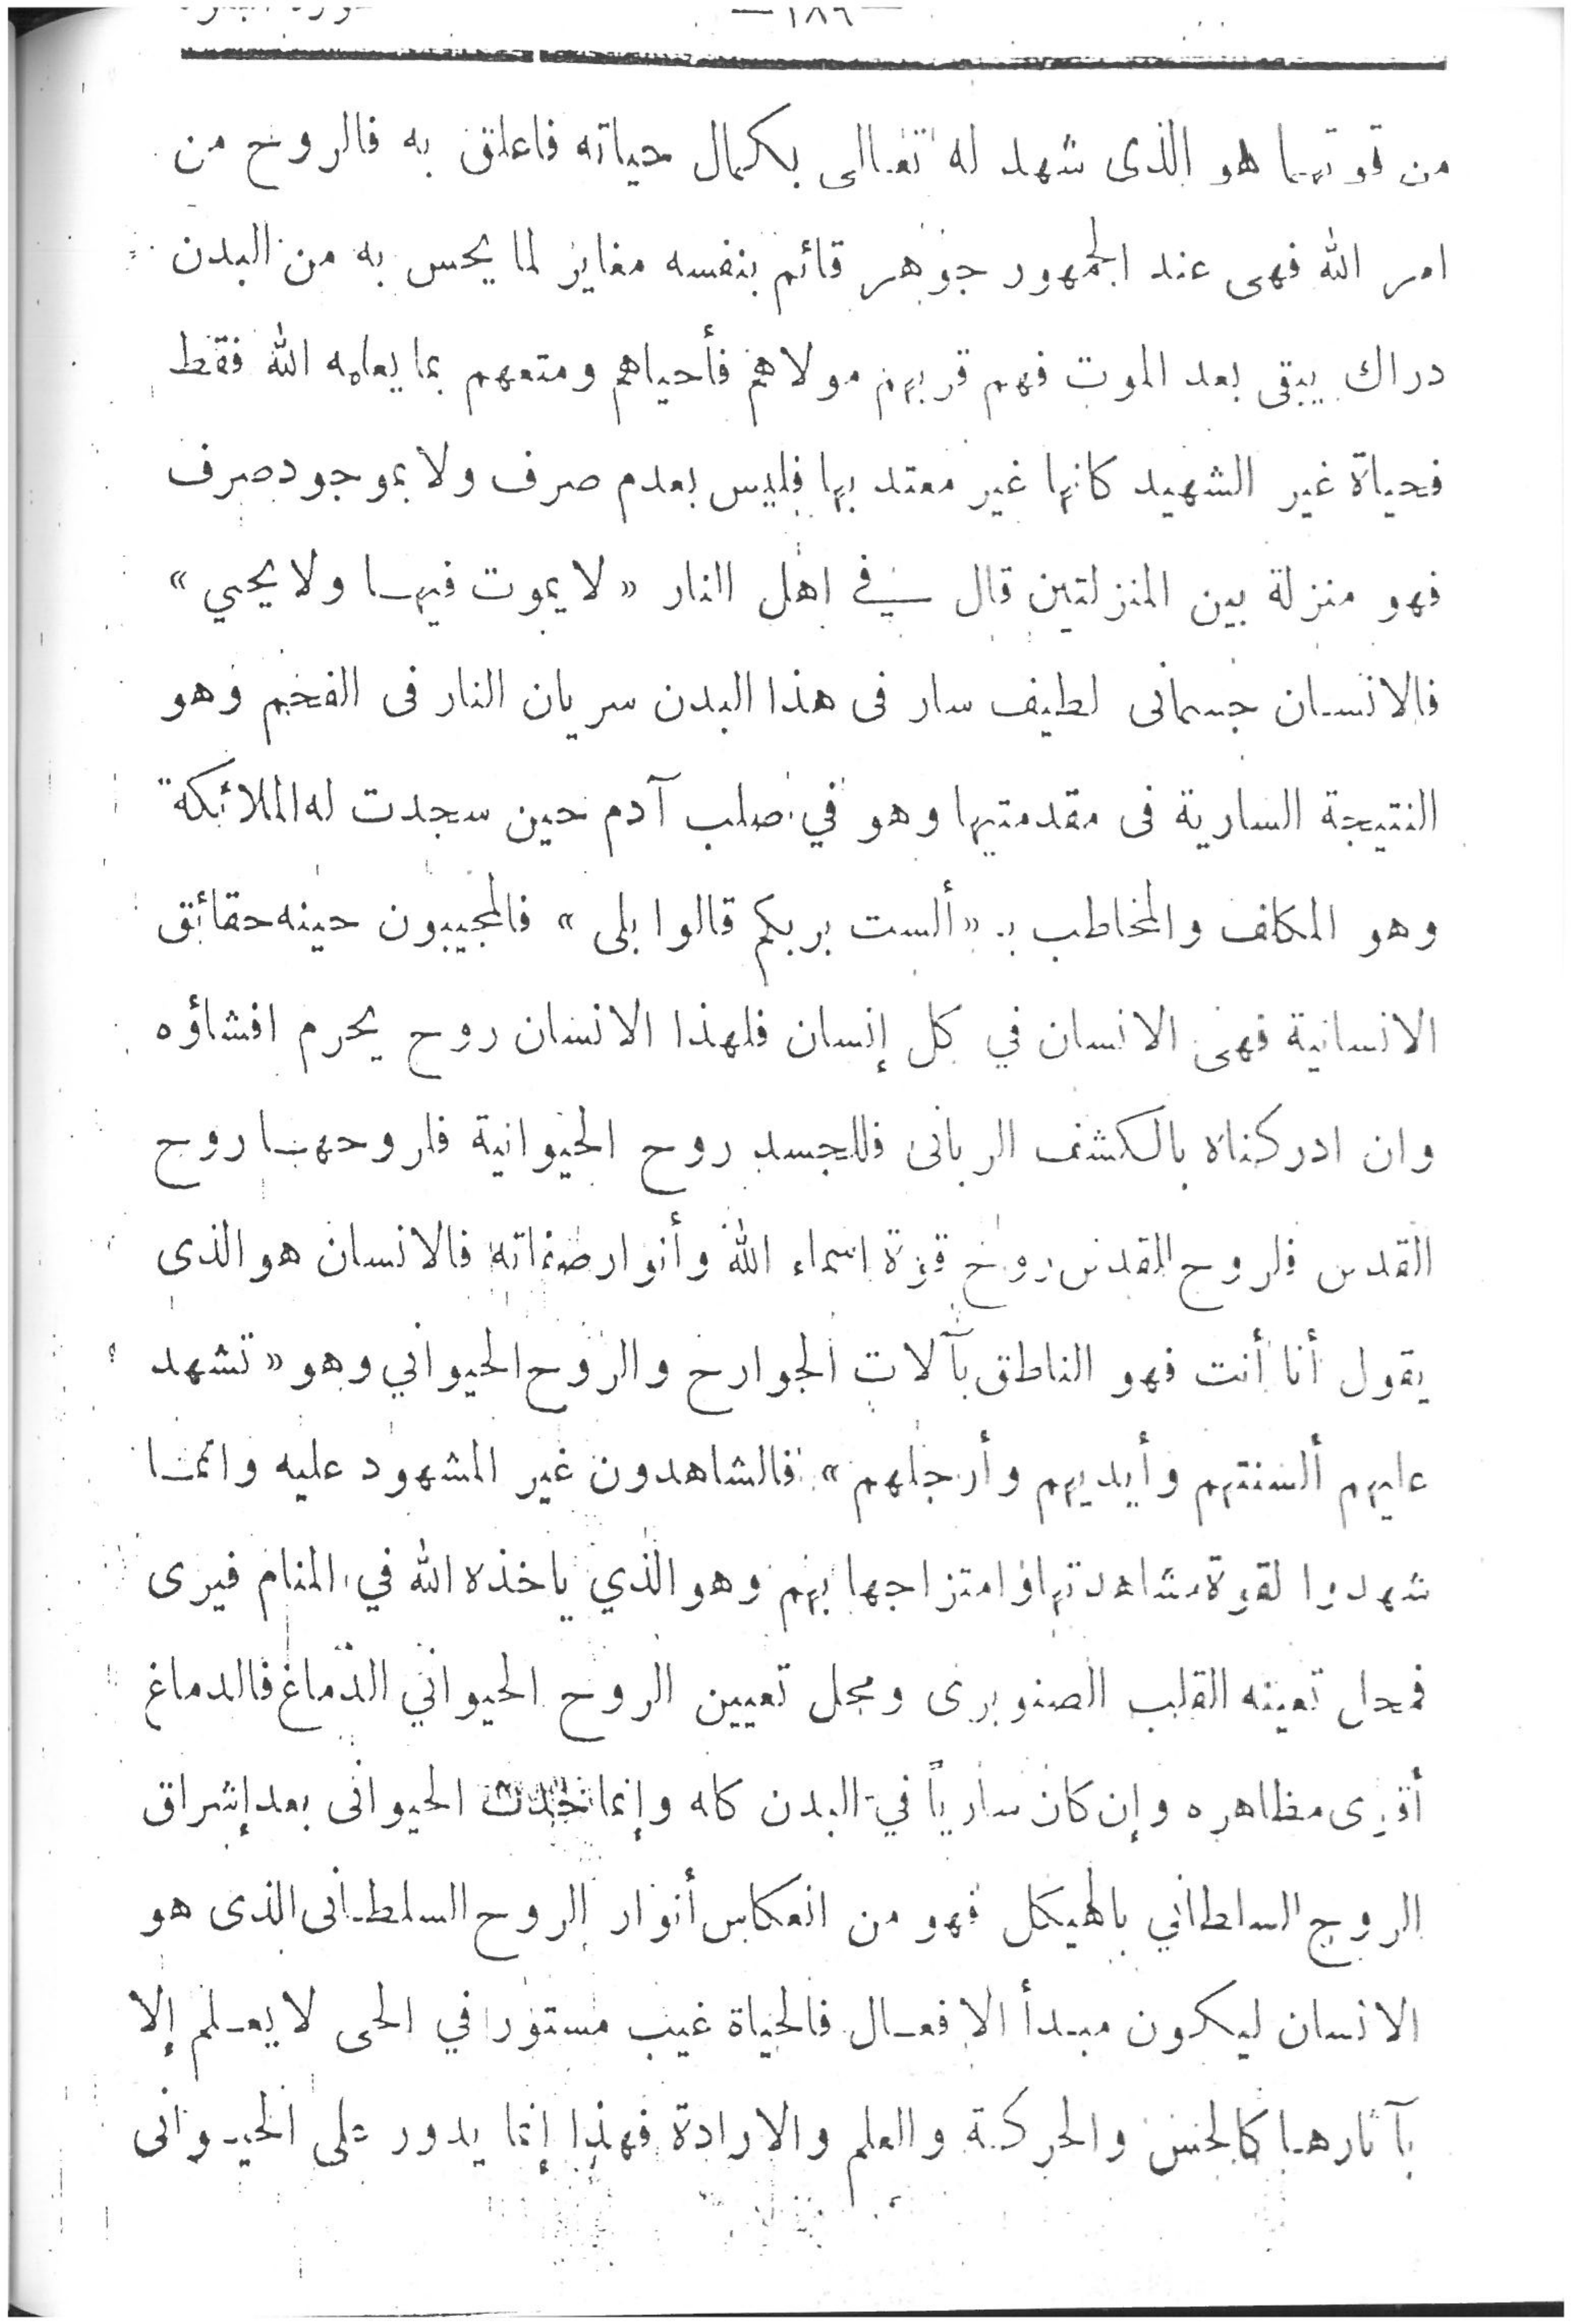 — ١٨٦ —
من قوتهما هو الذى شهد له تعالى بكمال حياته فاعلق به فالروح من
امر الله فهى عند الجمهور جوهر قائم بنفسه مغاير لما يحس به من البدن
دراك يبقى بعد الموت فهم قربهم مولاهم فأحياهم ومتعهم بما يعلمه الله فقط
فحياة غير الشهيد كانها غير معتد بها فليس بعدم صرف ولا بموجود صرف
فهو منزلة بين المنزلتين قال في اهل النار «لا يموت فيها ولا يحيي»
فالانسان جسمانى لطيف سار فى هذا البدن سريان النار فى الفحم وهو
النتيجة السارية فى مقدمتيها وهو في صلب آدم حين سجدت له الملائكة
وهو المكلف والمخاطب بـ «ألست بربكم قالوا بلى» فالمجيبون حينه حقائق
الانسانية فهى الانسان في كل إنسان فلهذا الانسان روح يحرم افشاؤه
وان ادركناه بالكشف الربانى فللجسد روح الحيوانية فلروحها روح
القدس فلروح القدس روح قوة اسماء الله وأنوار صفاته فالانسان هو الذى
يقول أنا أنت فهو الناطق بآلات الجوارح والروح الحيواني وهو «تشهد
عليهم ألسنتهم وأيديهم وأرجلهم» فالشاهدون غير المشهود عليه وانما
شهدوا لقوة مشاهدتها وامتزاجها بهم وهو الذي ياخذه الله في المنام فيرى
فمحل تعينه القلب الصنوبرى ومحل تعيين الروح الحيواني الدماغ فالدماغ
أقوى مظاهره وإن كان سارياً في البدن كله وإنما حدث الحيوانى بعد إشراق
الروح السلطاني بالهيكل فهو من انعكاس أنوار الروح السلطانى الذى هو
الانسان ليكون مبدأ الافعال فالحياة غيب مستور في الحى لا يعلم إلا
بآثارها كالحس والحركة والعلم والارادة فهذا إنما يدور على الحيوانى